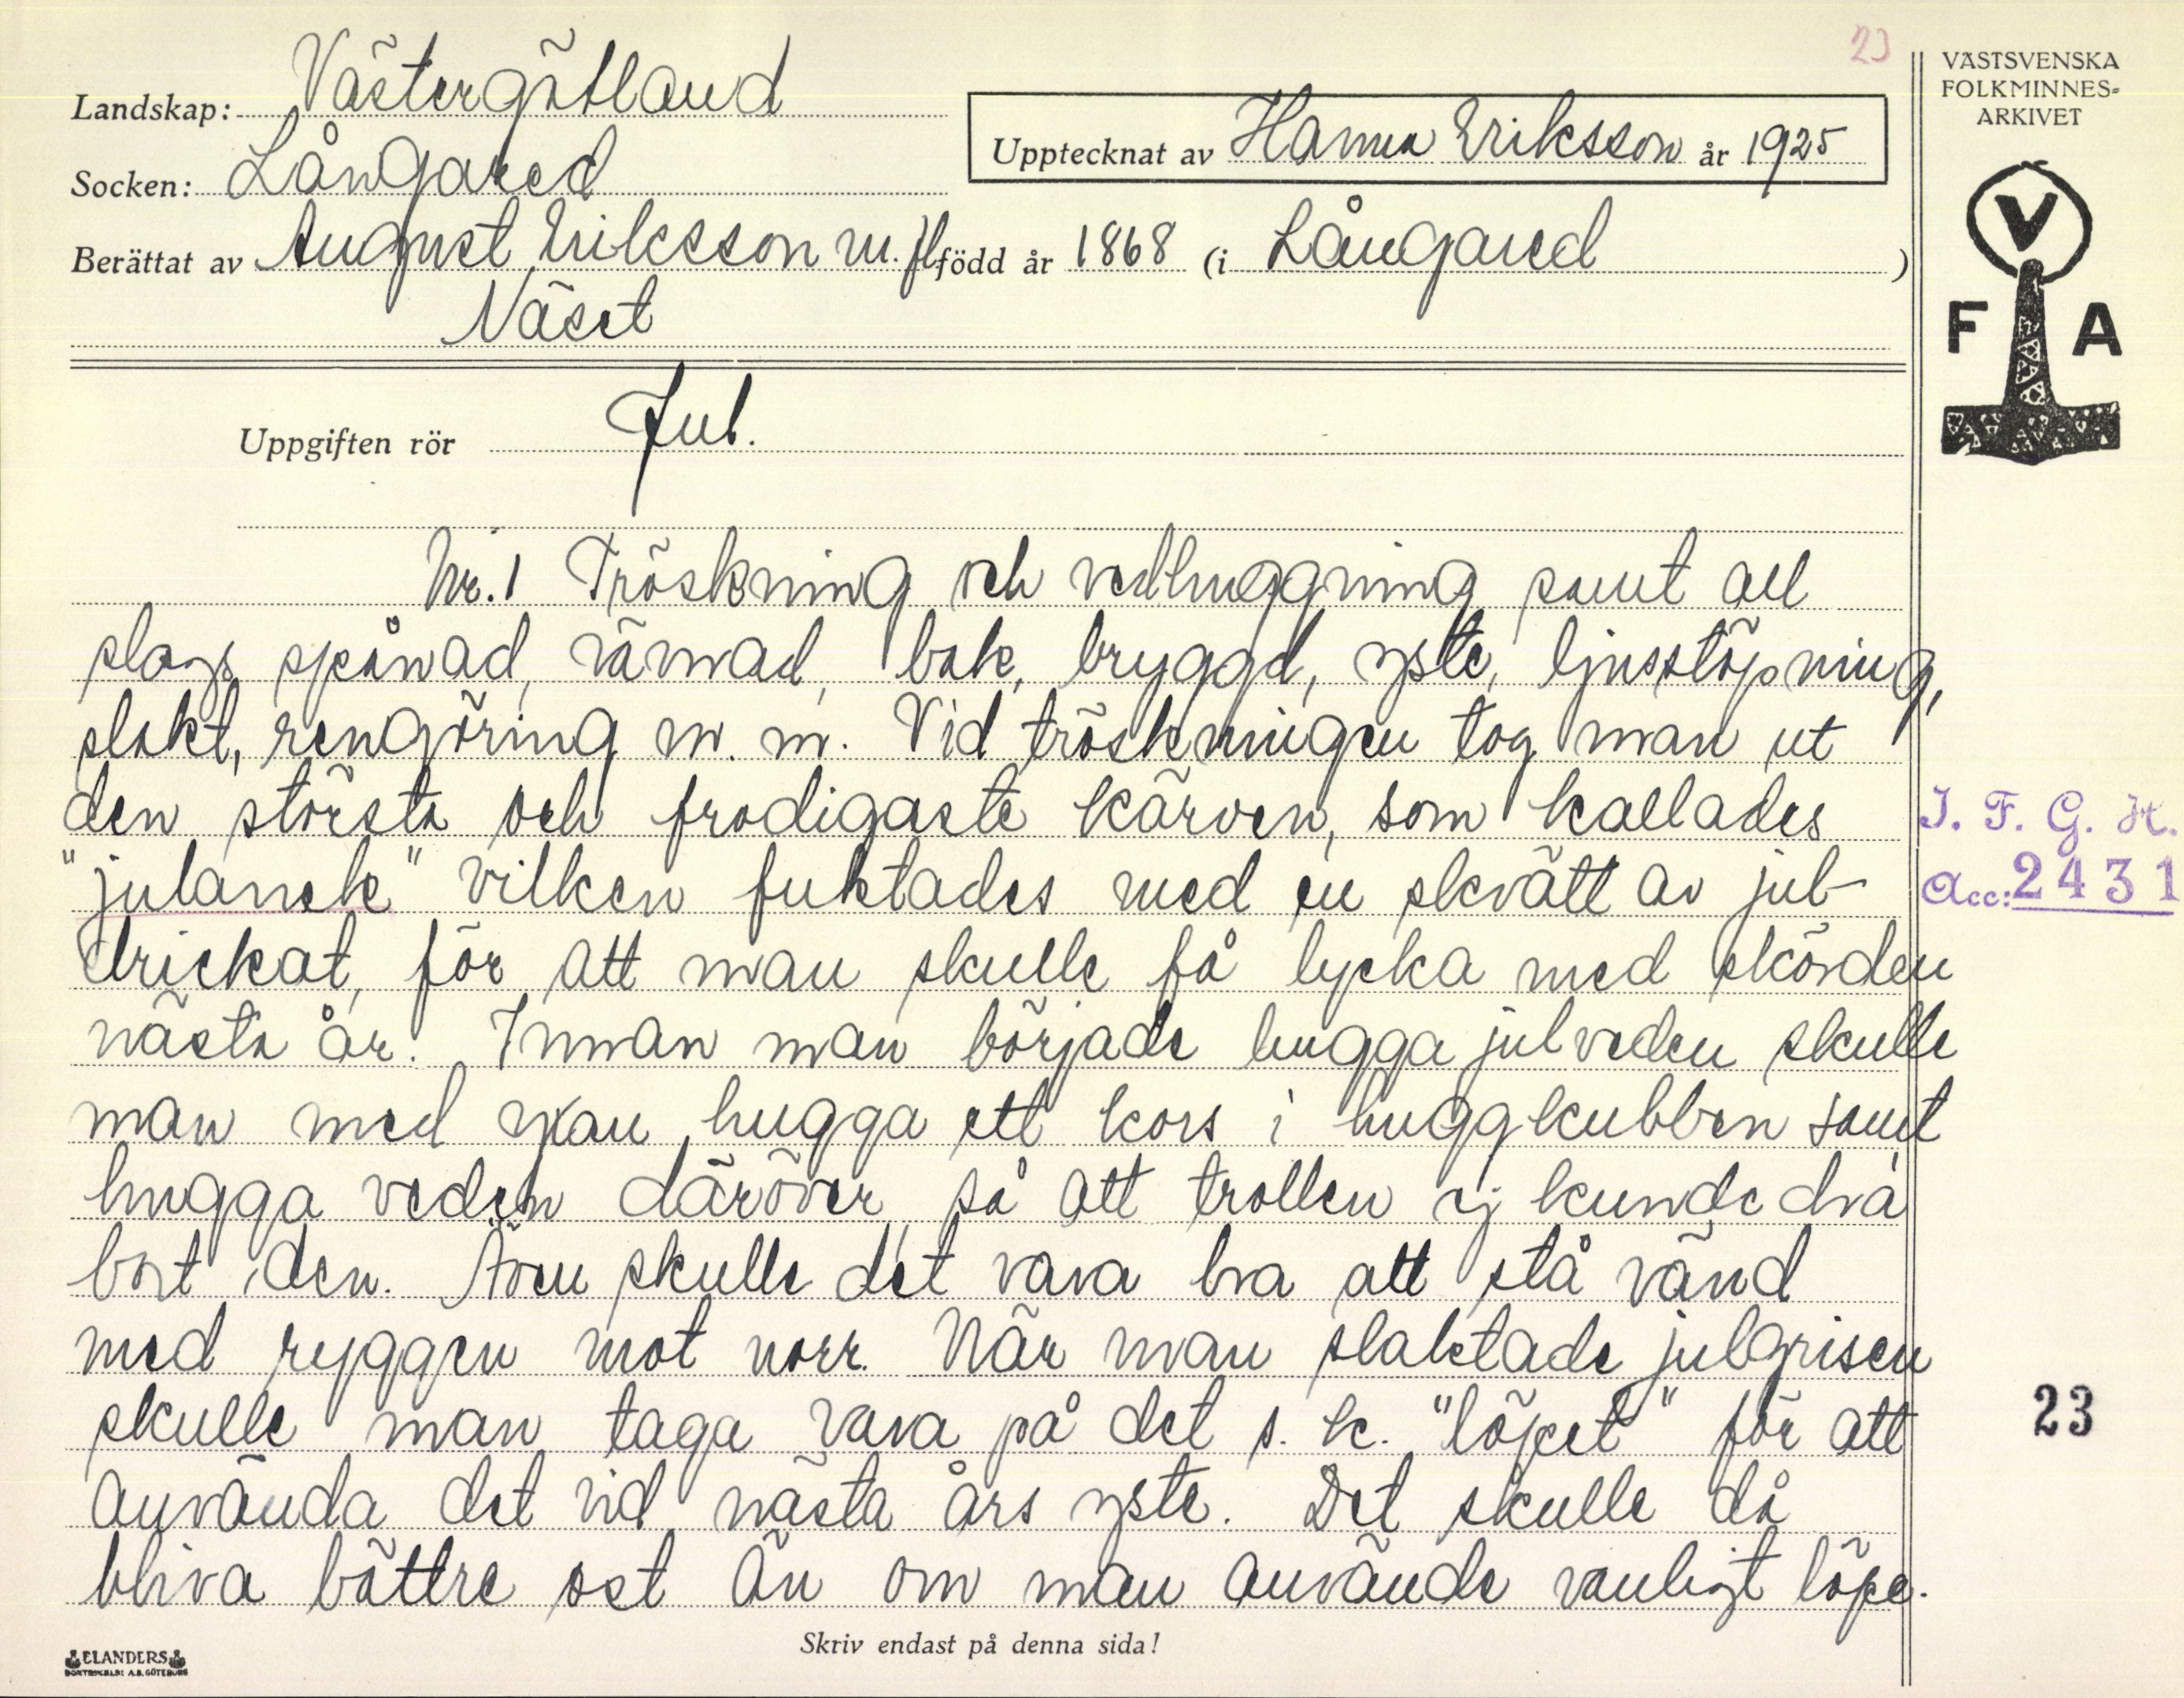 23
VÄSTSVENSKA
FOLKMINNES-
ARKIVET
Landskap: Västergötland
Upptecknat av Hanna Eriksson år 1925
Socken: Långared
Berättat av August Eriksson m. fl född år 1868 (i Långared )
Näset
V
F A
Uppgiften rör Jul.
Nr. 1 Tröskning och vedhuggning samt all
slags spånad, vävnad, bak, bryggd, yste, ljusstöpning,
slakt, rengöring m. m. Vid tröskningen tog man ut
den största och frodigaste kärven, som kallades
"julanek" vilken fuktades med en skvätt av jul-
drickat, för att man skulle få lycka med skörden
nästa år. Innan man började hugga julveden skulle
man med yxan hugga ett kors i huggkubben samt
hugga veden däröver, så att trollen ej kunde dra
bort den. Även skulle det vara bra att stå vänd
med ryggen mot norr. När man slaktade julgrisen
skulle man taga vara på det s. k. "löpet" för att
använda det vid nästa års yste. Det skulle då
bliva bättre ost än om man använde vanligt löpe.
I. F. G. H.
Acc: 2431
23
Skriv endast på denna sida!
ELANDERS
BOKTRYCKERI A.B. GÖTEBORG